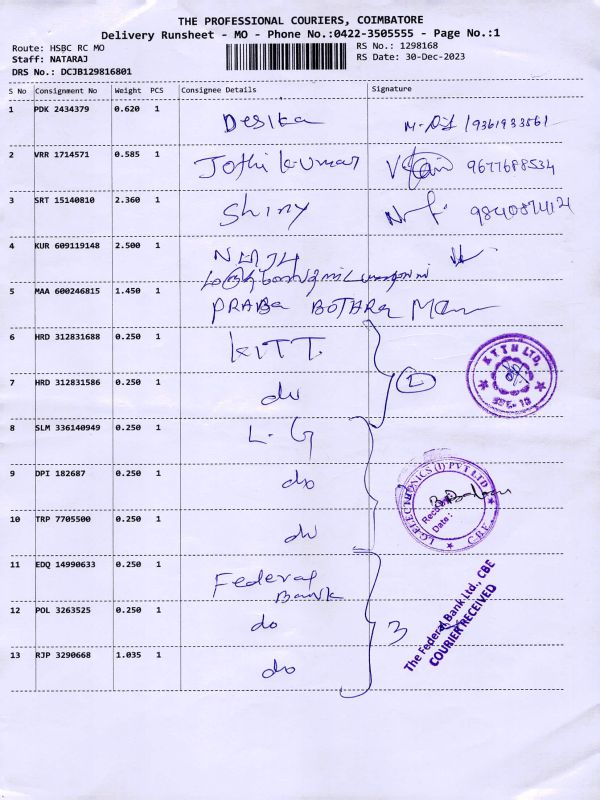 THE PROFESSIONAL COURIERS, COIMBATORE
Delivery Runsheet - MO - Phone No.:0422-3505555 - Page No.:1
Route: HSBC RC MO
Staff: NATARAJ
DRS No.: DCJB129816801
RS No.: 1298168
RS Date: 30-Dec-2023
S No Consignment No Weight PCS Consignee Details Signature
1 PDK 2434379 0.620 1 Desika 9361933561
2 VRR 1714571 0.585 1 Jothi kumar 9677688534
3 SRT 15140810 2.360 1 Shiny
4 KUR 609119148 2.500 1
5 MAA 600246815 1.450 1 PRABA BOTHRA
6 HRD 312831688 0.250 1 KITT.
7 HRD 312831586 0.250 1 do
2
K.T.T.M LTD.
8 SLM 336140949 0.250 1 L.G
9 DPI 182687 0.250 1 do
10 TRP 7705500 0.250 1 do
LG ELECTRONICS (I) PVT LTD
Date :
C.B.E.
11 EDQ 14990633 0.250 1 Federal Bank
12 POL 3263525 0.250 1 do
3
13 RJP 3290668 1.035 1 do
The Federal Bank Ltd., CBE
COURIER RECEIVED